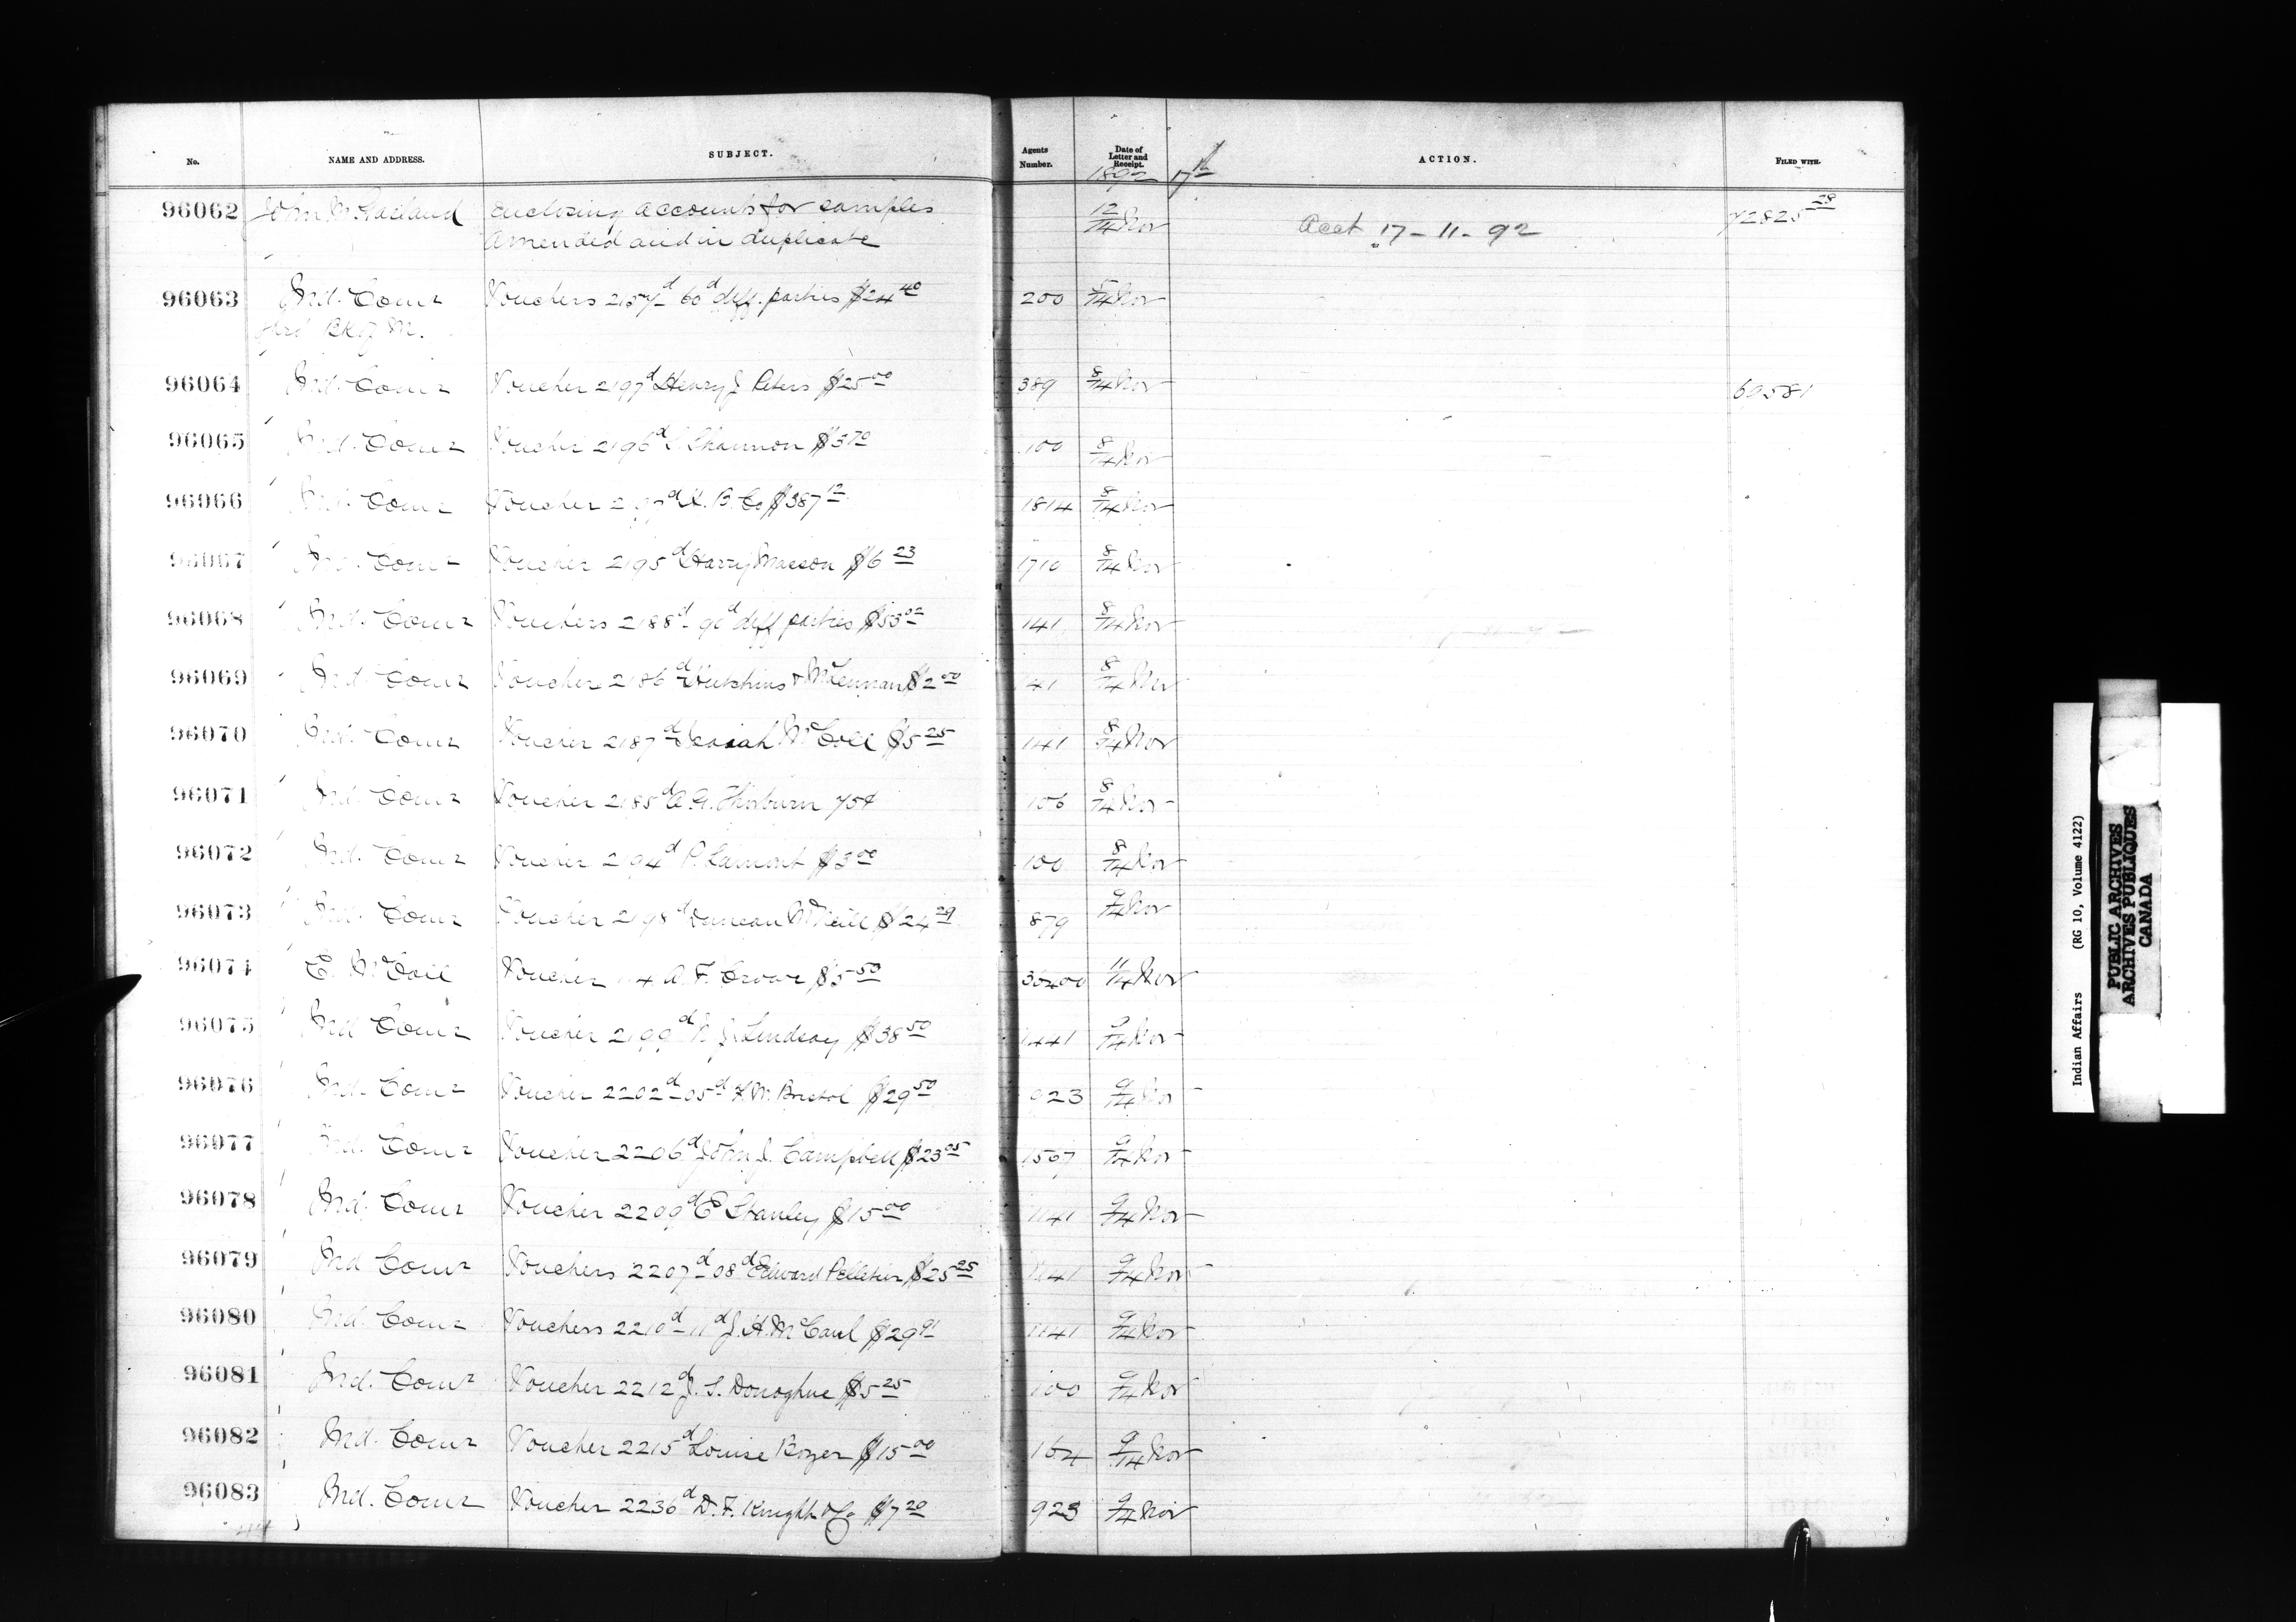 No. NAME AND ADDRESS. SUBJECT. Agents Number. Date of Letter and Receipt. ACTION. FILED WITH.
1892 17th
96062 enclosing accounts for samples 12/14 Nov Acct 17-11-92 72825-28
Amended and in duplicate
96063 Ind. Comr Vouchers 2157d 60d diff. parties $24 40 200 5/14 Nov
96064 Ind. Comr Voucher 2197d Henry J. Peters $25 00 389 8/14 Nov 60581
96065 Ind. Comr Voucher 2196d Shannon $3 70 100 8/14 Nov
96066 Ind. Comr Voucher H. B. Co $387 12 1814 8/14 Nov
96067 Ind. Comr Voucher 2195d Harry Masson $6 23 1710 8/14 Nov
96068 Ind. Comr Vouchers 2188d 90d diff parties $53 02 141 8/14 Nov
96069 Ind. Comr Voucher 2186d Hutchins & McLennan $2 00 41 8/14 Nov
96070 Ind. Comr Voucher 2187d McColl $5 25 141 8/14 Nov
96071 Ind. Comr Voucher 2185d A. G. Thorburn 75¢ 106 8/14 Nov
96072 Ind. Comr Voucher 2194d P. Lamont $3 00 100 8/14 Nov
96073 Ind. Comr Voucher 2198d Duncan McNeill $24 29 879 9/14 Nov
96074 E. McColl Voucher 114 A. F. Crowe $5 50 36400 11/14 Nov
96075 Ind Comr Voucher 2199d N. J. Lindsay $38 50 1441 9/14 Nov
96076 Ind. Comr Voucher 2202d 05d F. W. Bristol $29 50 923 9/14 Nov
96077 Ind. Comr Voucher 2206d John J. Campbell $23 05 1567 9/14 Nov
96078 Ind. Comr Voucher 2209d E Stanley $15 00 1141 9/14 Nov
96079 Ind Comr Vouchers 2207d 08d Edward Pelletier $25 25 1141 9/14 Nov
96080 Ind. Comr Vouchers 2210d 11d J. H. McCaul $29 91 1141 9/14 Nov
96081 Ind. Comr Voucher 2212d J. S. Donoghue $5 25 100 9/14 Nov
96082 Ind. Comr Voucher 2215d Louise Bozer $15 00 164 9/14 Nov
96083 Ind. Comr Voucher 2236d D. F. Knight & Co $7 20 923 9/14 Nov
Indian Affairs (RG 10, Volume 4122)
PUBLIC ARCHIVES
ARCHIVES PUBLIQUES
CANADA